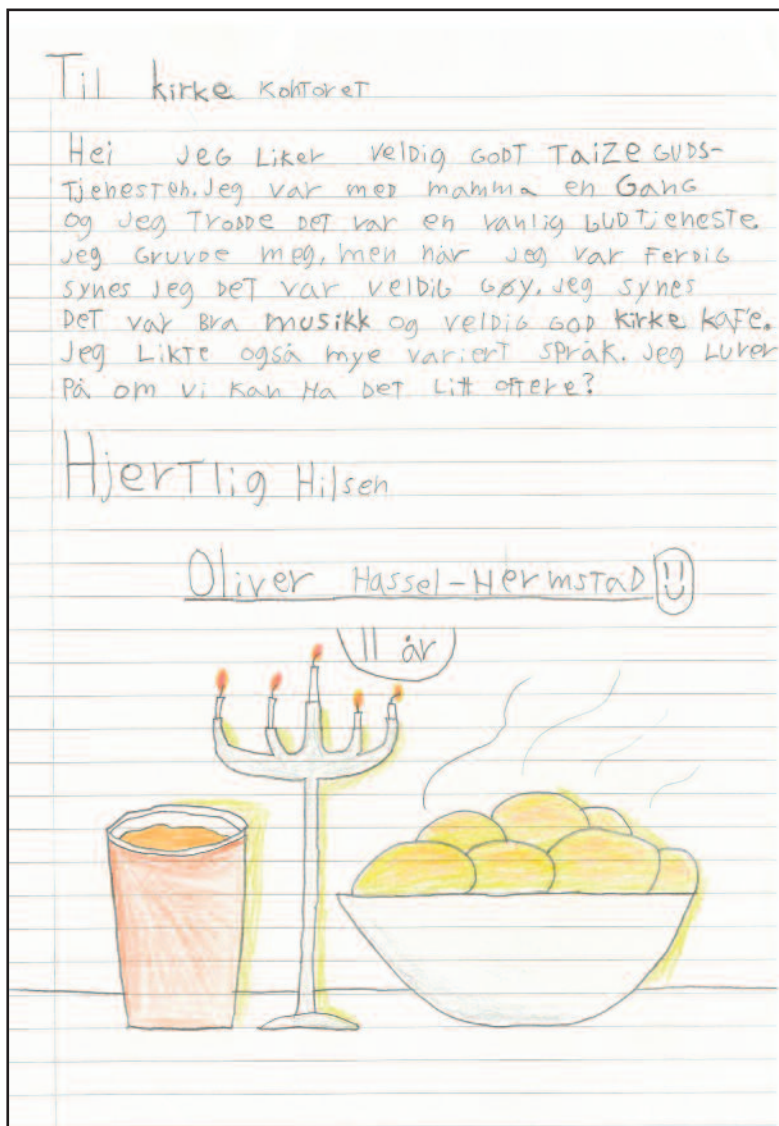 Til kirke kontoret
Hei Jeg Liker veldig GODT Taize GUDS-
Tjenesten. Jeg var med mamma en Gang
og Jeg Trodde DET var en vanlig GUDTjeneste.
Jeg Gruvde meg, men når Jeg var Ferdig
synes Jeg DET var veldig Gøy. Jeg synes
DET var Bra musikk og veldig GOD kirke kafe.
Jeg Likte også mye variert språk. Jeg Lurer
På om vi kan Ha DET Litt oftere?
Hjertlig Hilsen
Oliver Hassel-Hermstad
11 år